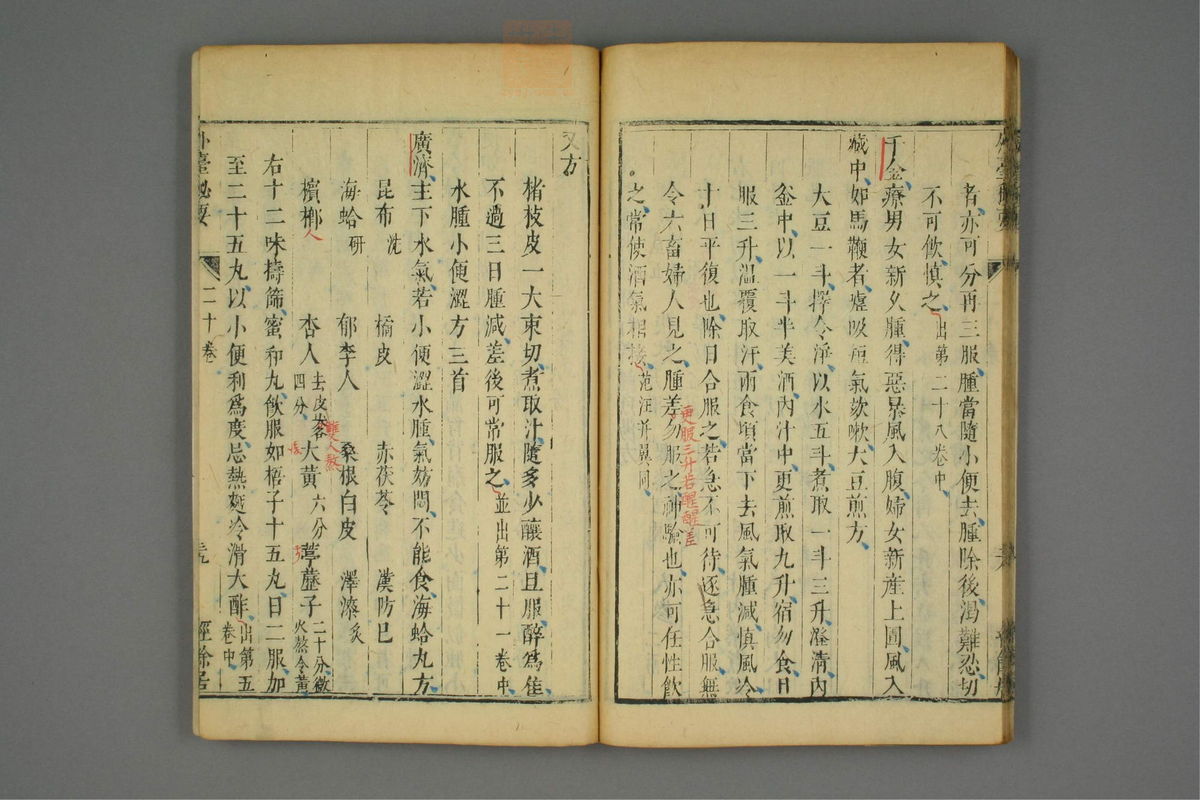 者亦可分再三服腫當隨小便去腫除後渴難忍切
不可飲慎之出第二十八卷中
千金療男女新久腫得惡暴風入腹婦女新產上圊風入
藏中如馬鞭者噓吸短氣欬嗽大豆煎方
大豆一斗擇令淨以水五斗煮取一斗三升澄清內
釜中以一斗半美酒內汁中更煎取九升宿勿食旦
服三升溫覆取汗兩食頃當下去風氣腫減慎風冷
十日平復也除日合服之若急不可待逐急合服無
更服三升若醒醒差
令六畜婦人見之腫差勿服之神驗也亦可任性飲
之常使酒氣相范汪并異同
又方
楮枝皮一大束切煮取汁隨多少釀酒且服醉為佳
不過三日腫減差後可常服之並出第二十一卷中
水腫小便澀方三首
廣濟主下水氣若小便澀水腫氣妨悶不能食海蛤丸方
昆布洗 橘皮 赤茯苓 漢防巳
海蛤研 郁李人 桑根白皮 澤漆炙
檳榔人 杏人去皮尖四分 大黃六分 葶藶子二十分微火熬令黃
雙人熬
右十二味擣篩蜜和丸飲服如梧子十五丸日二服加
至二十五丸以小便利為度忌熱麵冷滑大酢出第五卷中
外臺秘要
二十卷
經餘居